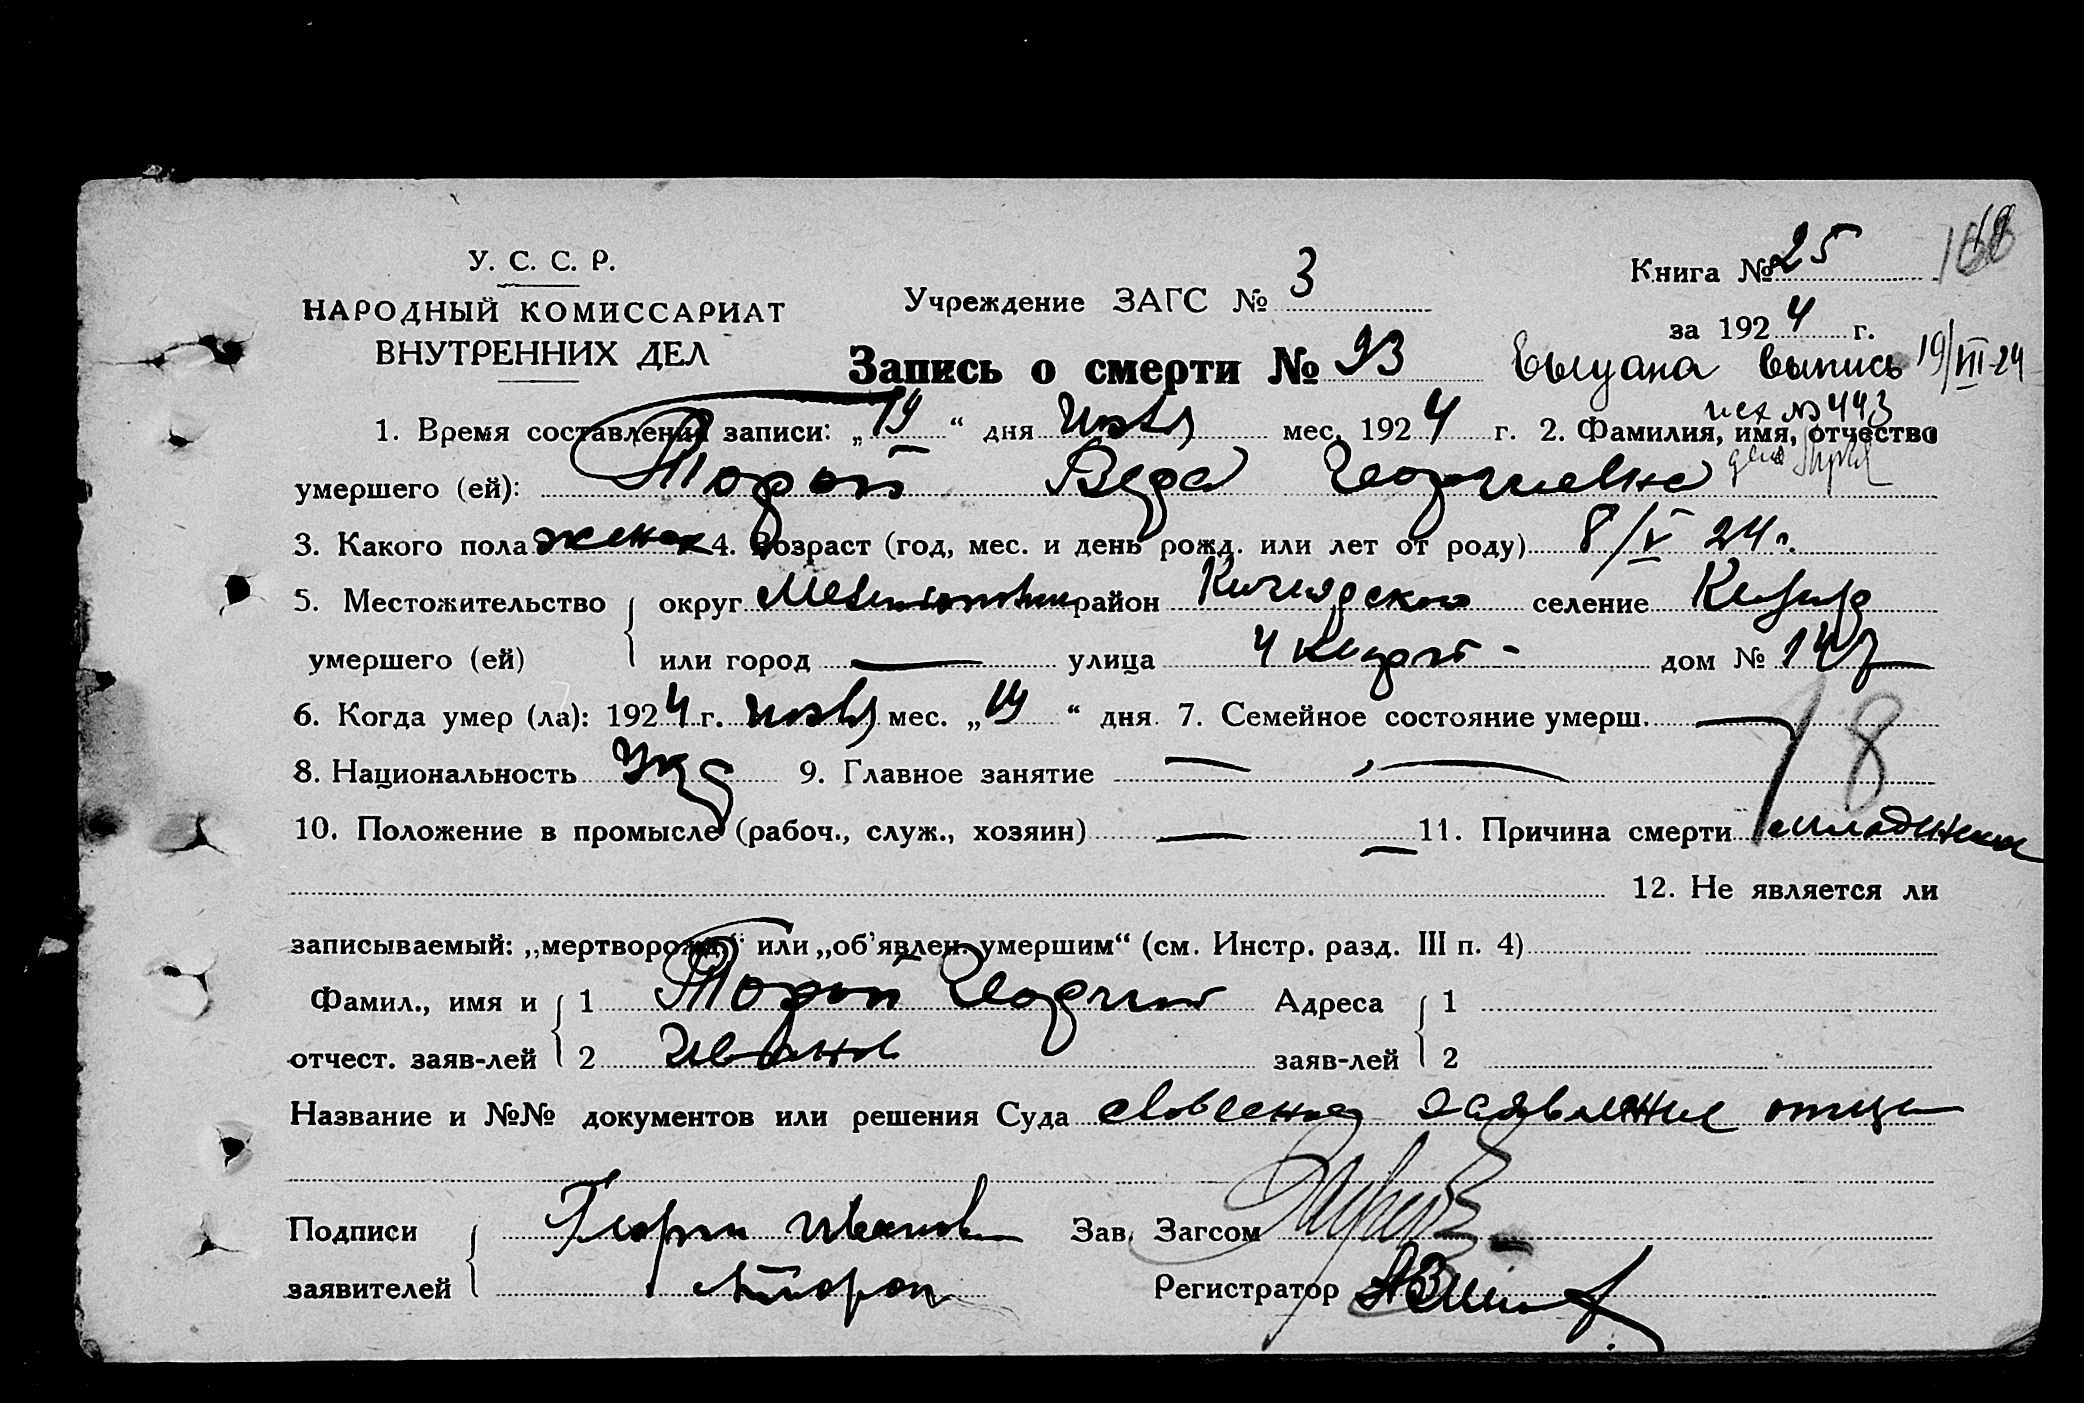 У. С. С. Р.
НАРОДНЫЙ КОМИССАРИАТ
ВНУТРЕННИХ ДЕЛ
Учреждение ЗАГС № 3
Книга № 25
за 1924 г.
Запись о смерти № 93 выдана выпись 19/VIII-24
исх №443
1. Время составления записи: „19“ дня июля мес. 1924 г. 2. Фамилия, имя, отчество
умершего (ей): Торой Вера Георгиевна
3. Какого пола женск 4. Возраст (год, мес. и день рожд. или лет от роду) 8/V 24 г.
5. Местожительство округ район селение
умершего (ей) или город — улица 4 кварт - дом № 147
6. Когда умер (ла): 1924 г. июля мес. „19“ дня 7. Семейное состояние умерш. —
18
8. Национальность укр 9. Главное занятие —
10. Положение в промысле (рабоч., служ., хозяин) — 11. Причина смерти младенская
12. Не является ли
записываемый: „мертворожд.“ или „об'явлен. умершим“ (см. Инстр. разд. III п. 4)
Фамил., имя и 1 Торой Георгий Адреса 1
отчест. заяв-лей 2 Иванов заяв-лей 2
Название и №№ документов или решения Суда словесное заявление отца
Подписи Георги Иванов Зав. Загсом
заявителей Регистратор